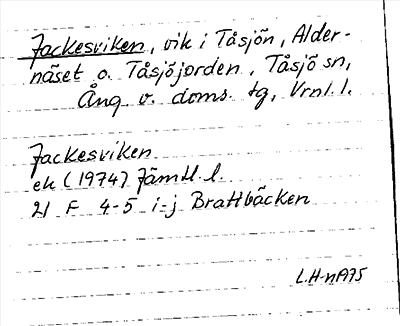 Jackesviken, vik i Tåsjön, Alder-
näset o. Tåsjöjorden, Tåsjö sn,
Ång. v. doms. tg, Vrnl. l.
Jackesviken
ek (1974) Jämtl. l.
21 F 4-5 i-j Brattbäcken
L.H-n 1975